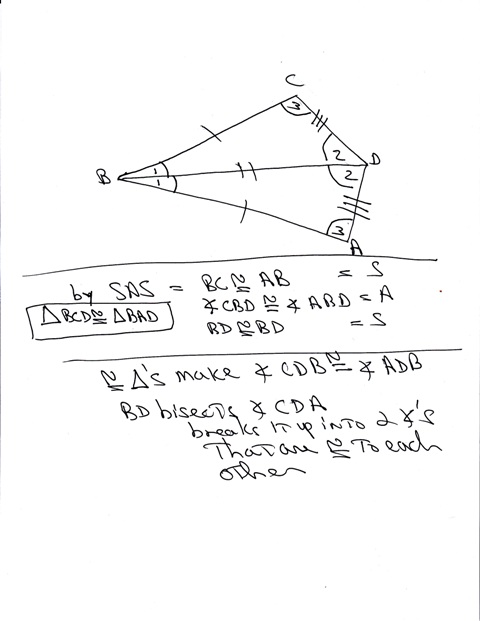 C
3
2
D
B
1
2
1
3
A
by SAS = BC ≅ AB = S
△BCD ≅ △BAD
∢CBD ≅ ∢ABD = A
BD ≅ BD = S
≅ △'s make ∢CDB ≅ ∢ADB
BD bisects ∢CDA
breaks it up into 2 ∢'s
That are ≅ To each
other